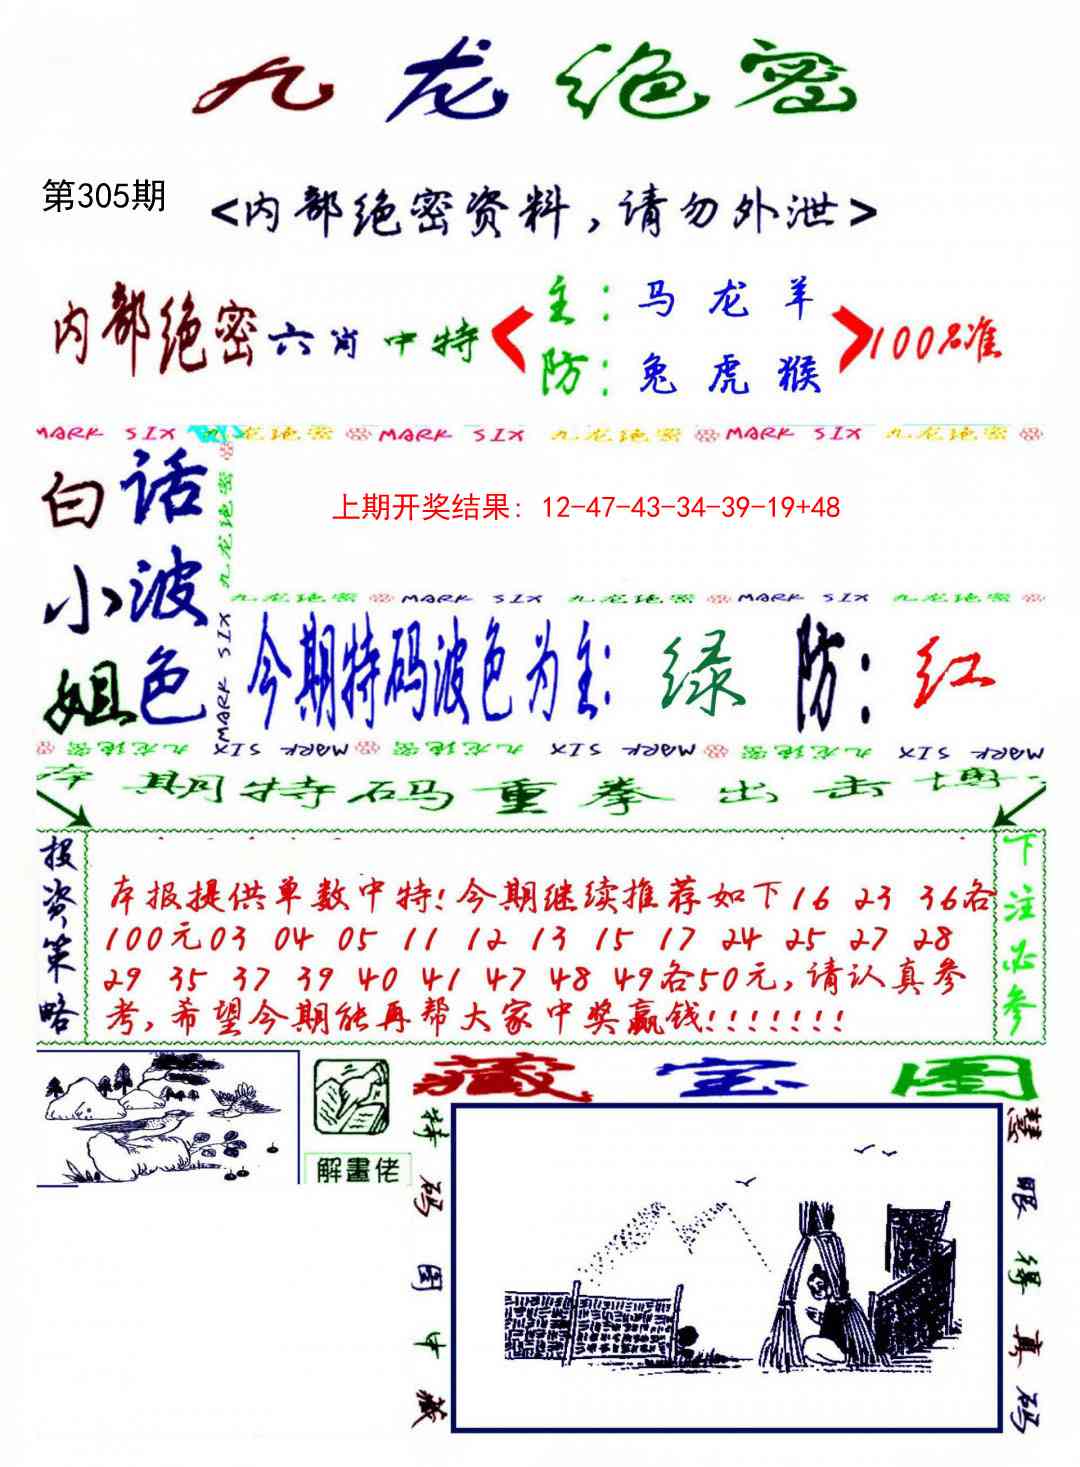 九龙绝密
第305期
<内部绝密资料,请勿外泄>
内部绝密六肖中特
主:马龙羊
防:兔虎猴
100%准
MARK SIX 九龙绝密 MARK SIX 九龙绝密 MARK SIX 九龙绝密
白话
小波
姐色
九龙绝密
MARK SIX
上期开奖结果: 12-47-43-34-39-19+48
九龙绝密 MARK SIX 九龙绝密 MARK SIX 九龙绝密
今期特码波色为主:绿 防:红
九龙绝密 MARK SIX 九龙绝密 MARK SIX 九龙绝密 MARK SIX
本期特码重拳出击博
投资策略
本报提供单数中特!今期继续推荐如下16 23 36各
100元03 04 05 11 12 13 15 17 24 25 27 28
29 35 37 39 40 41 47 48 49各50元,请认真参
考,希望今期能再帮大家中奖赢钱!!!!!!!
下注必参
解畫佬
藏宝图
特码图中藏
慧眼得真码